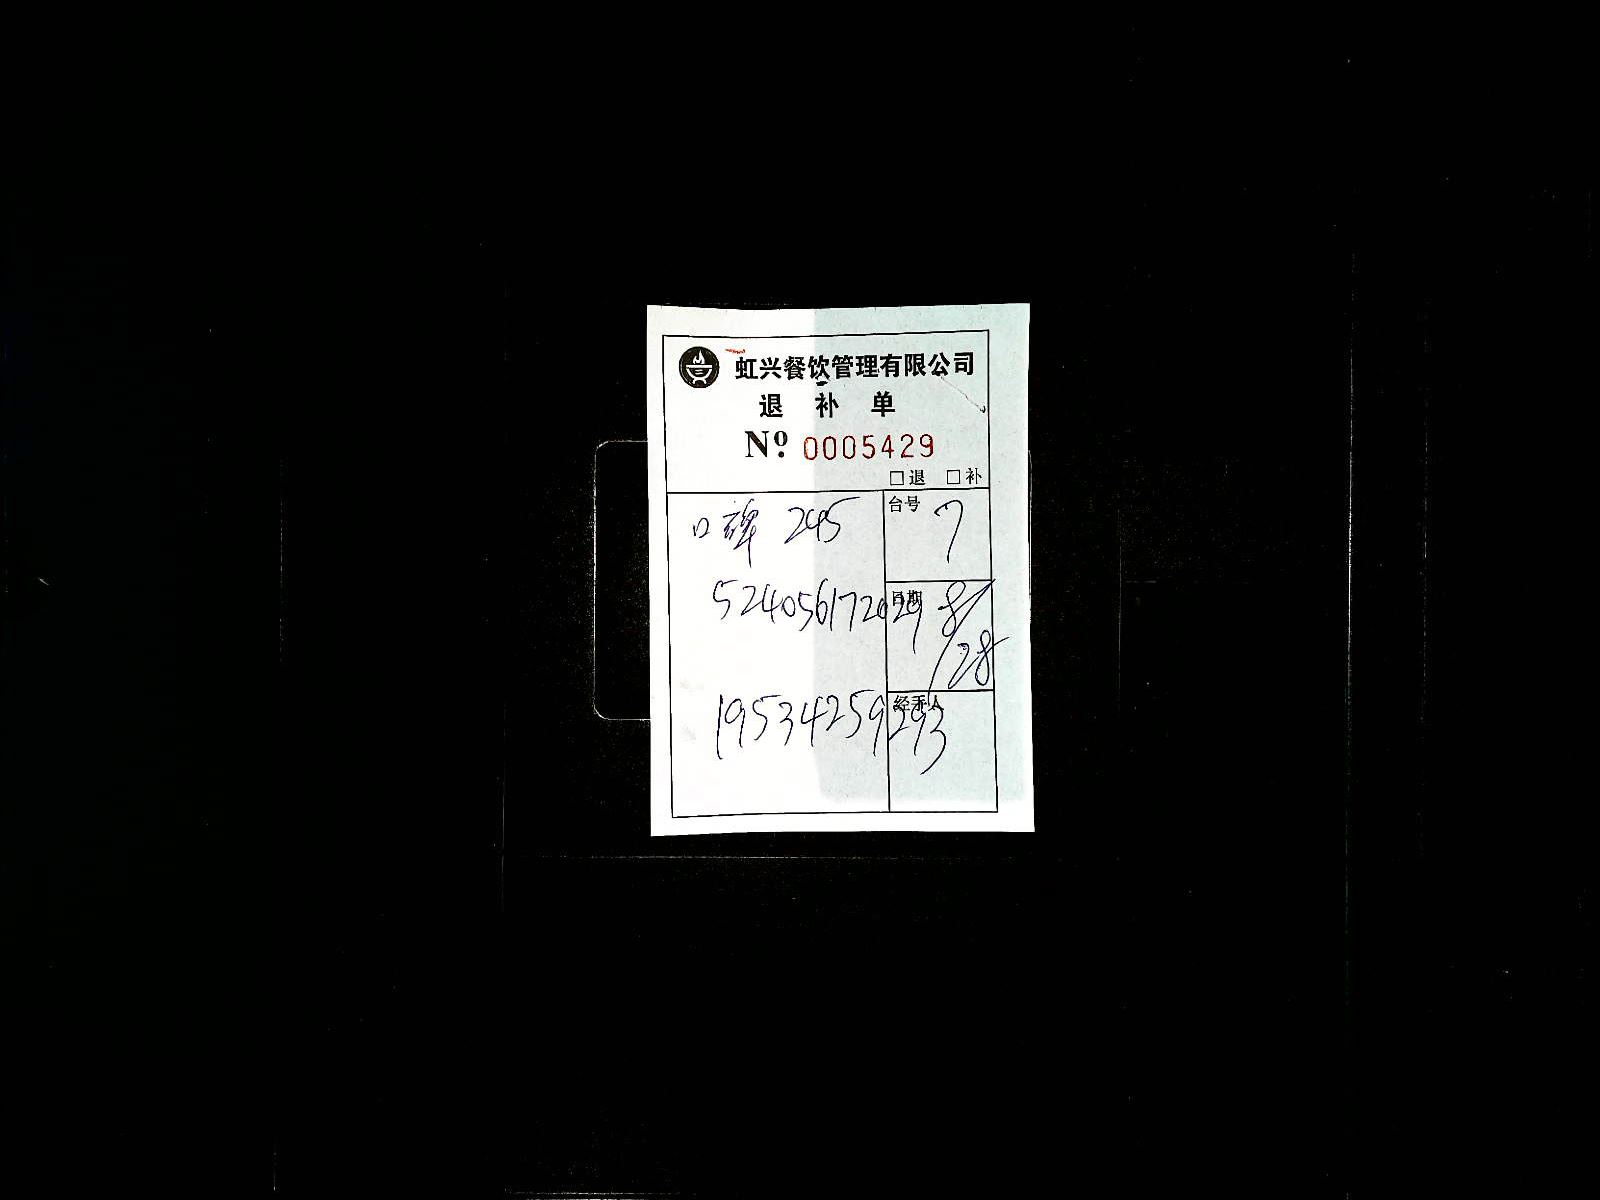 虹兴餐饮管理有限公司
退 补 单
Nº: 0005429
□退 □补
口碑 245
台号 7
524056172029
日期 8/28
19534259293
经手人